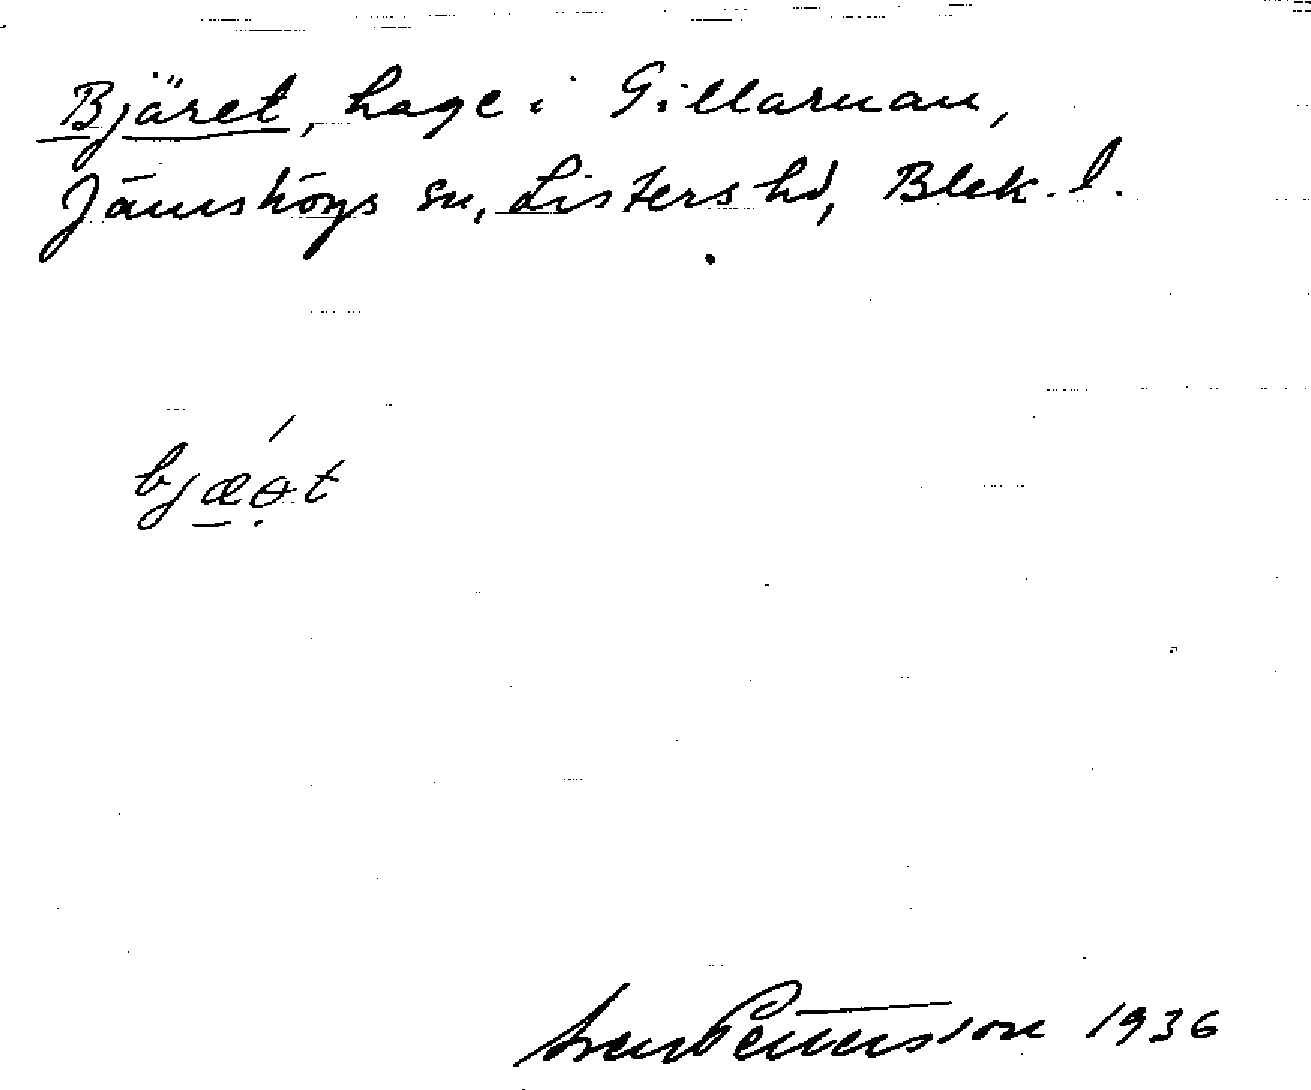 Bjäret, hage i Gillaruau,
Jämshögs sn, Listers hd, Blek. l.
bjæɵ̣́t
Sven Pettersson 1936